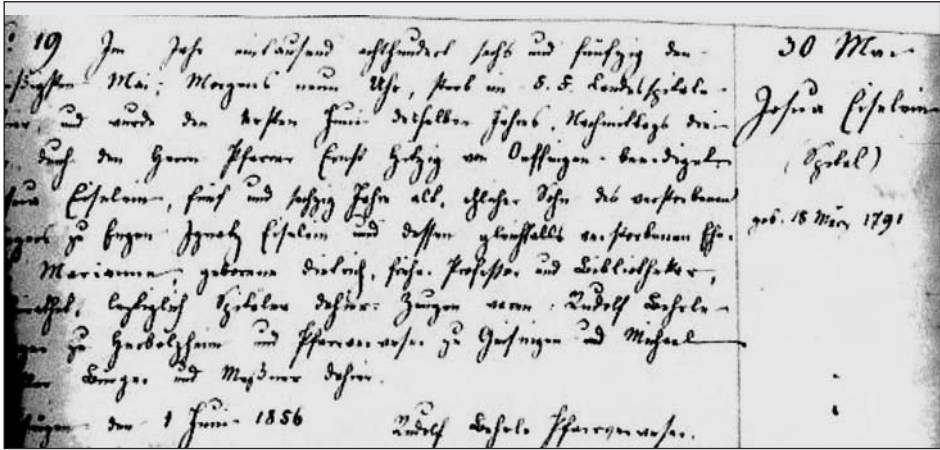 19 Im Jahr eintausend achthundert sechs und fünfzig den
Mai, Morgens neun Uhr, starb im F. F. Landesspitale
und wurde den ersten Juni desselben Jahres, Nachmittags drei
durch den Herrn Pfarrer Ernst von Oeffingen beerdigt
Eiselein, fünf und sechzig Jahre alt, ehlicher Sohn des verstorbenen
zu Ignatz Eiselein und dessen gleichfalls verstorbenen Ehe-
Marianne, geborene Dietrich, früher Professor und Bibliothekar,
Spitaler dahier. Zeugen waren: Rudolf Behrle
zu Herbolzheim und Pfarrverweser zu Gutmadingen und Michael
Bürger und Meßner dahier.
den 1 Juni 1856 Rudolf Behrle Pfarrverweser.
30 Mai
Josua Eiselein
(Spital)
geb. 18 März 1791